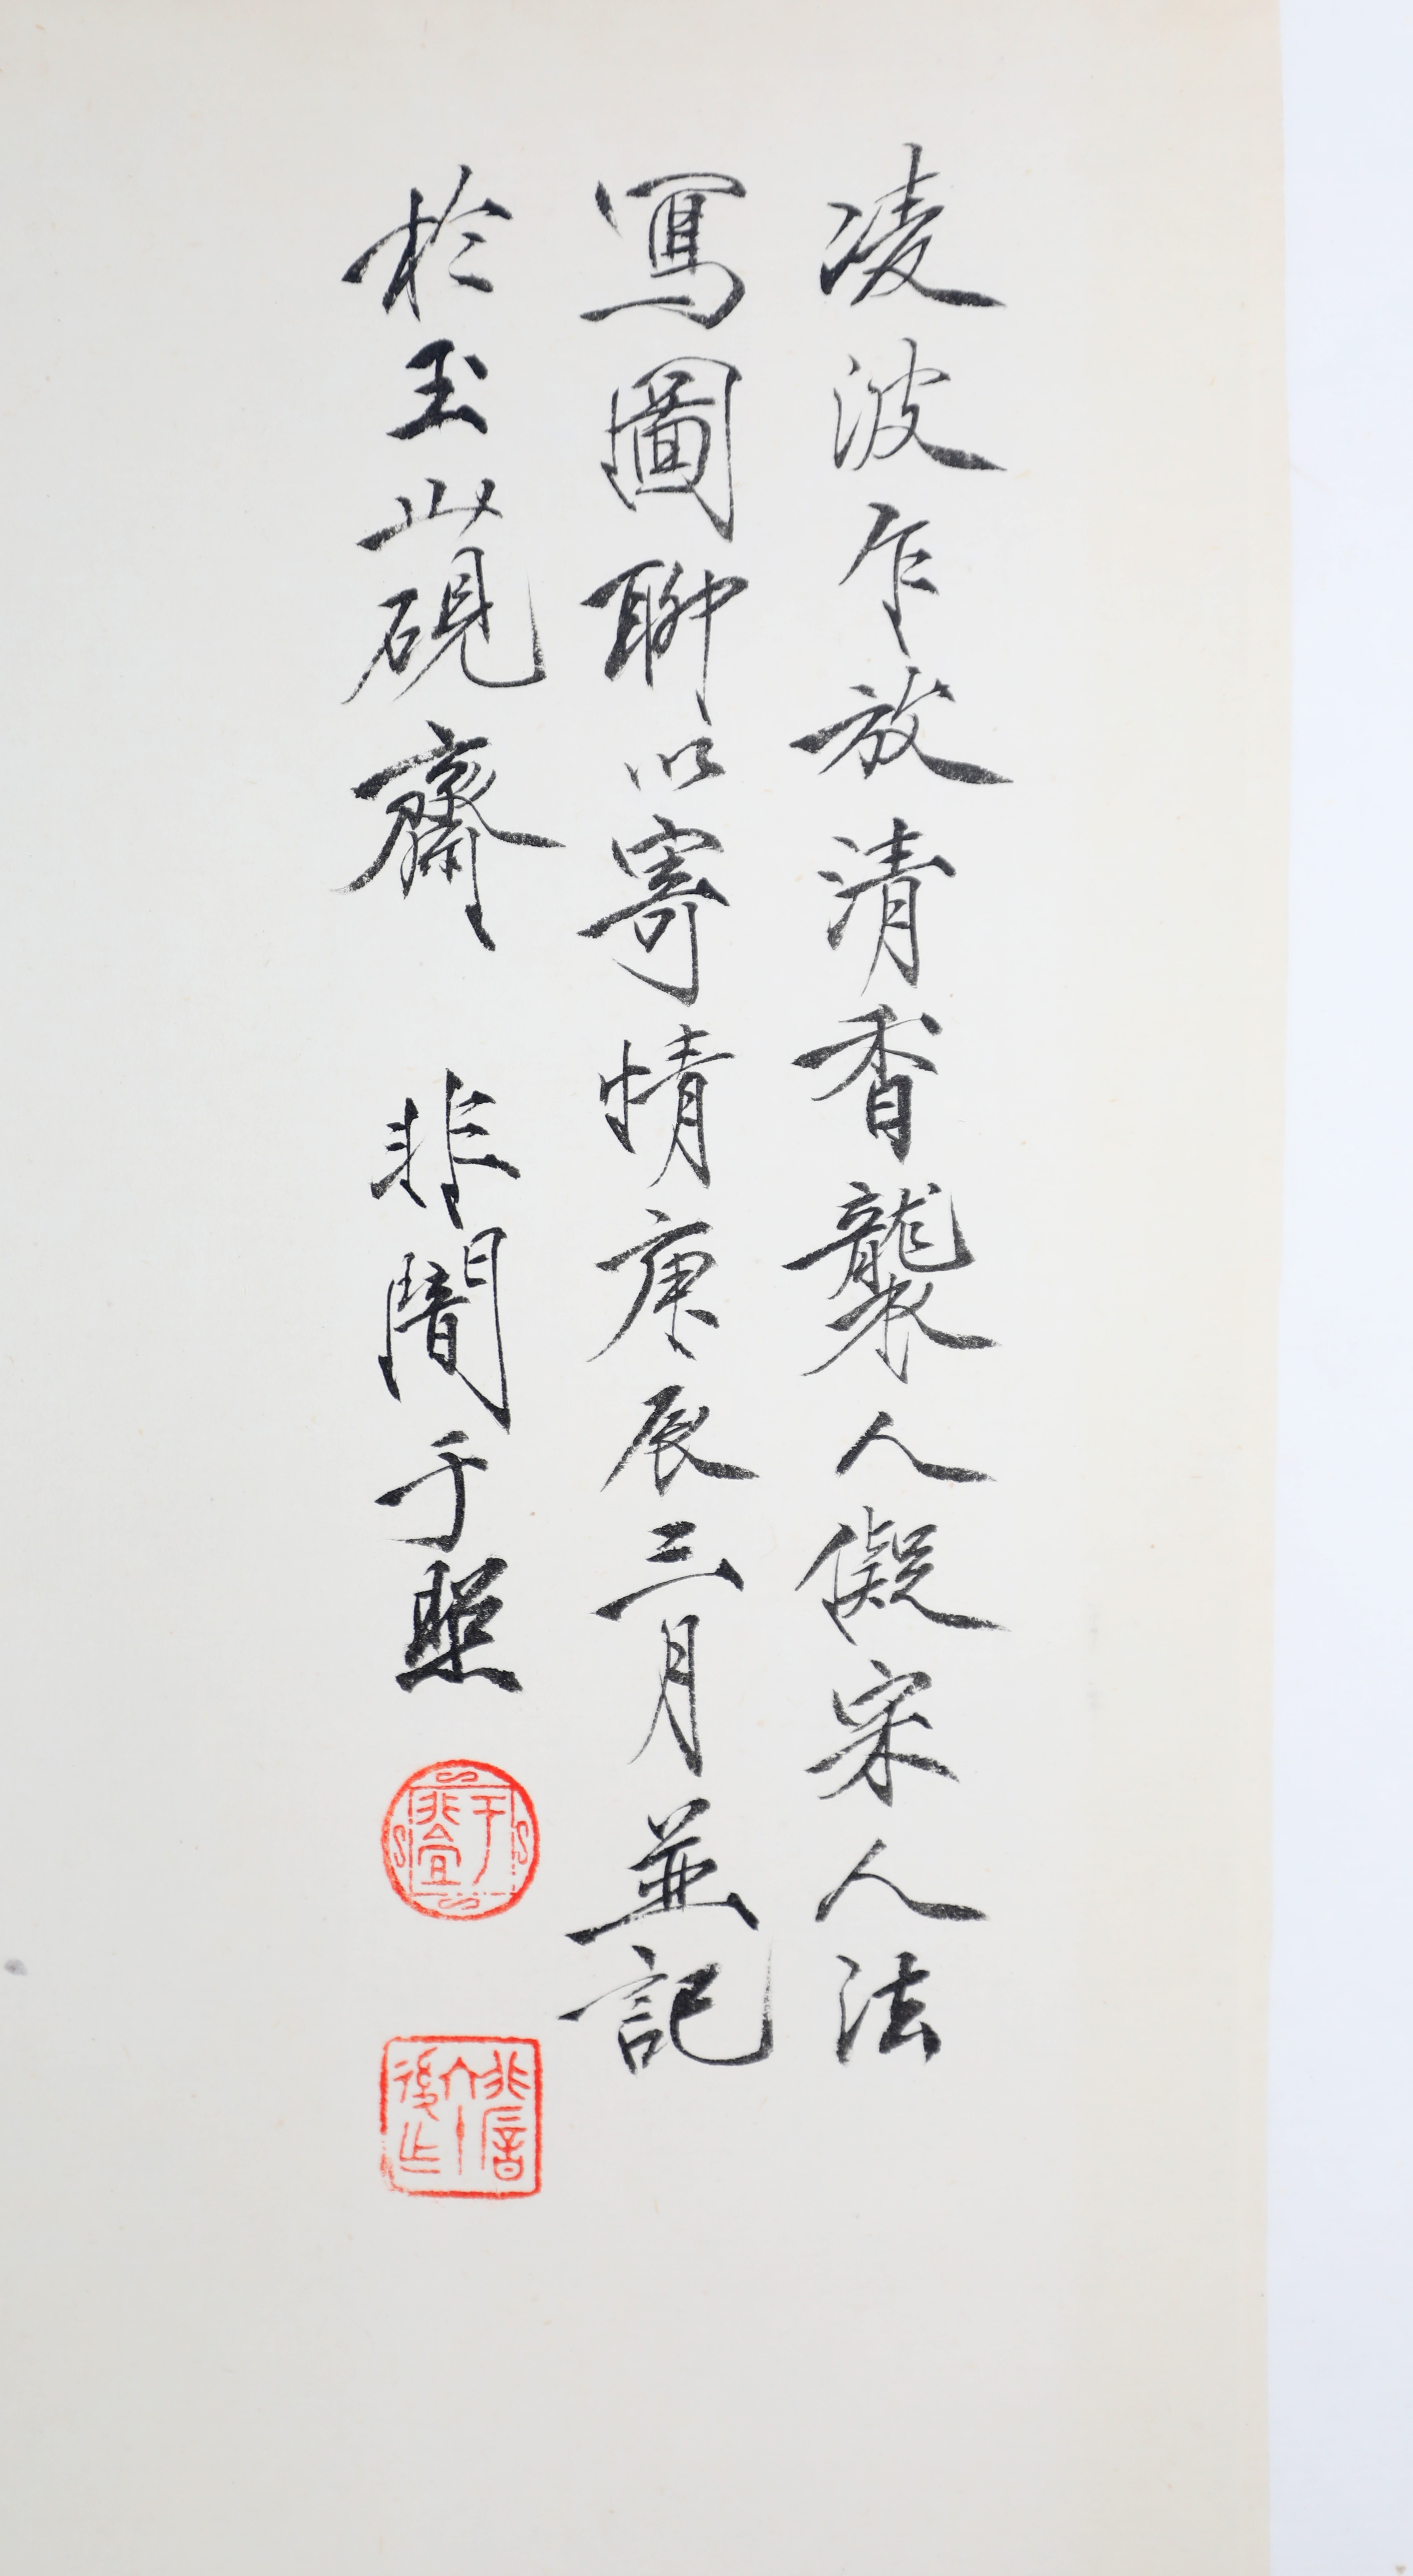 凌波乍放清香襲人儗宋人法
寫圖聊以寄情庚辰三月並記
於玉山硯齋 非闇于照
于非
非闇
後